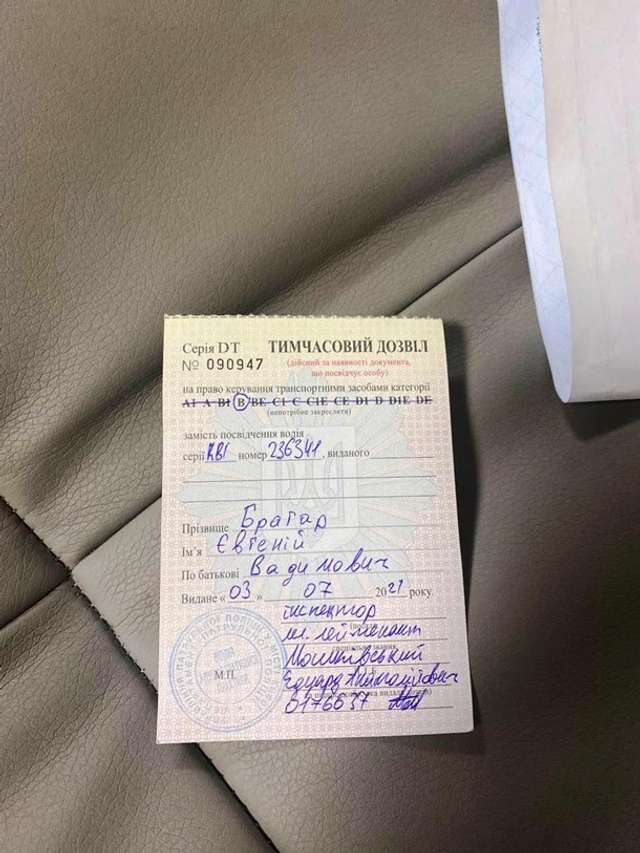 Серія DT ТИМЧАСОВИЙ ДОЗВІЛ
№ 090947 (дійсний за наявності документа,
що посвідчує особу)
на право керування транспортними засобами категорії
A1 A B1 B BE C1 C C1E CE D1 D D1E DE
(непотрібне закреслити)
замість посвідчення водія
серії номер 236341, виданого
Прізвище Брагар
Ім'я Євгеній
По батькові Вадимович
Видане «03» 07 2021 року
інспектор
мл. лейтенант
Едуард
М.П.
0176037